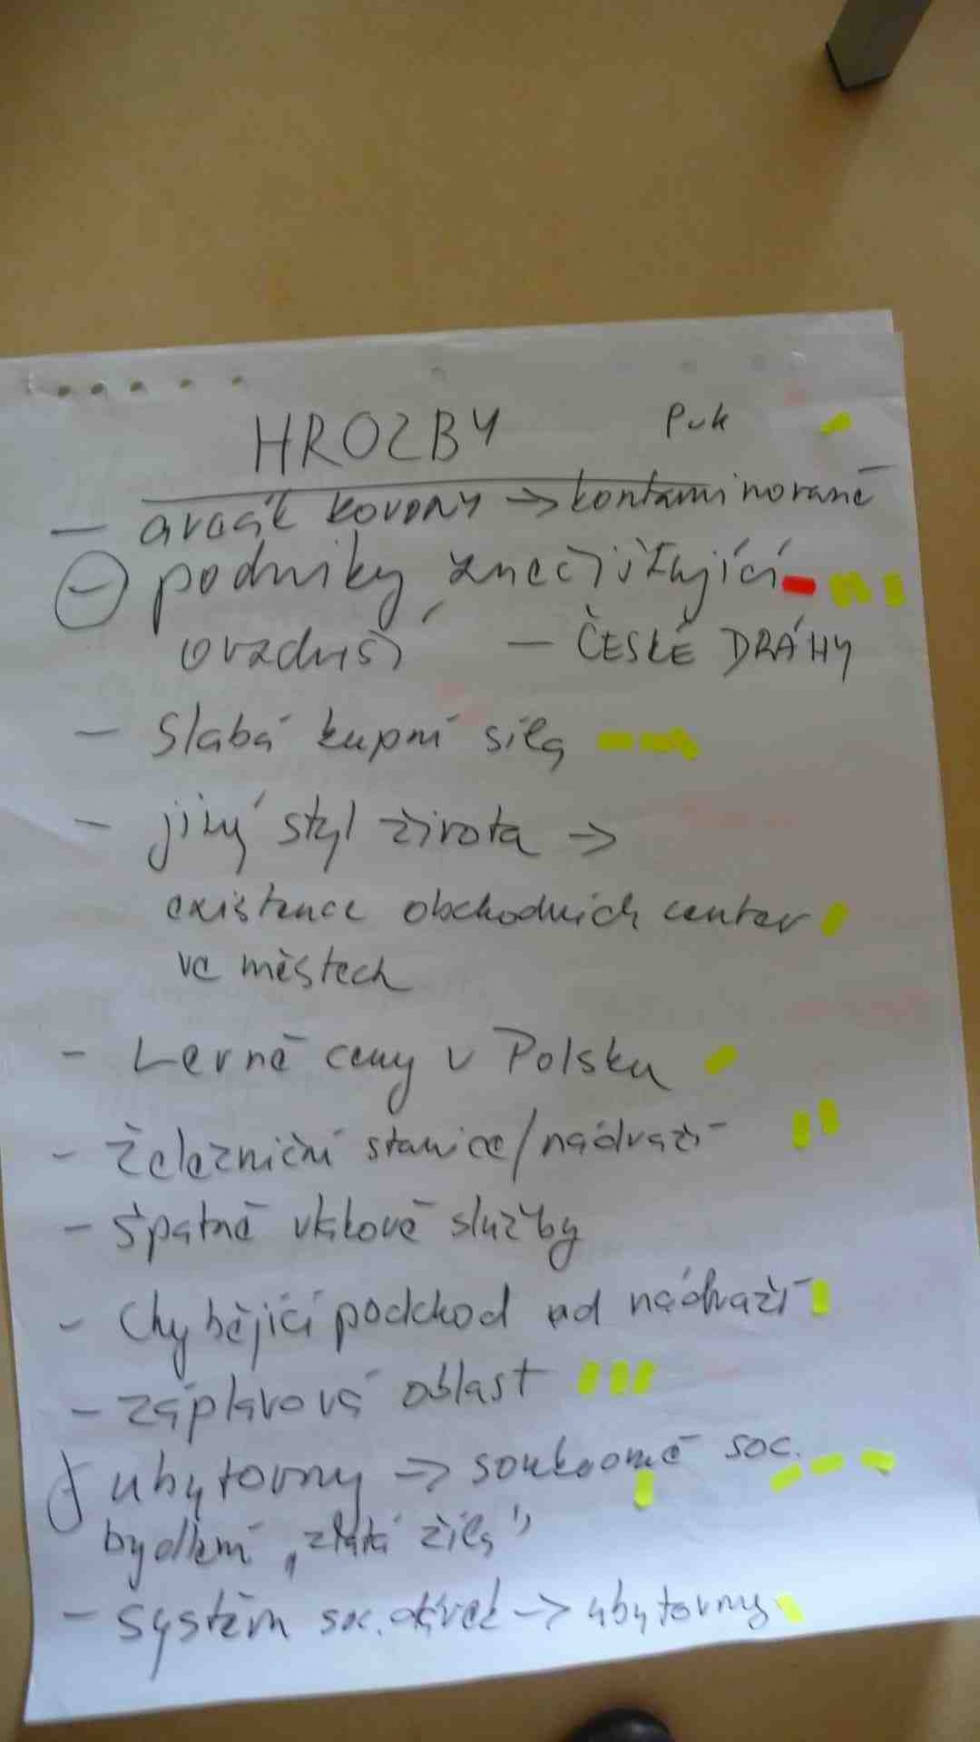 HROZBY
- areál KOVONY → kontaminované
- podniky znečišťující
ovzduší - ČESKÉ DRÁHY
- Slabá kupní síla
- jiný styl života →
existence obchodních center
ve městech
- Levné ceny v Polsku
- Železniční stanice/nádraží
- Špatné vlakové služby
- Chybějící podchod od nádraží
- záplavová oblast
- ubytovny → soukromé soc.
bydlení „zlatá žíla"
- systém soc. dávek → ubytovny